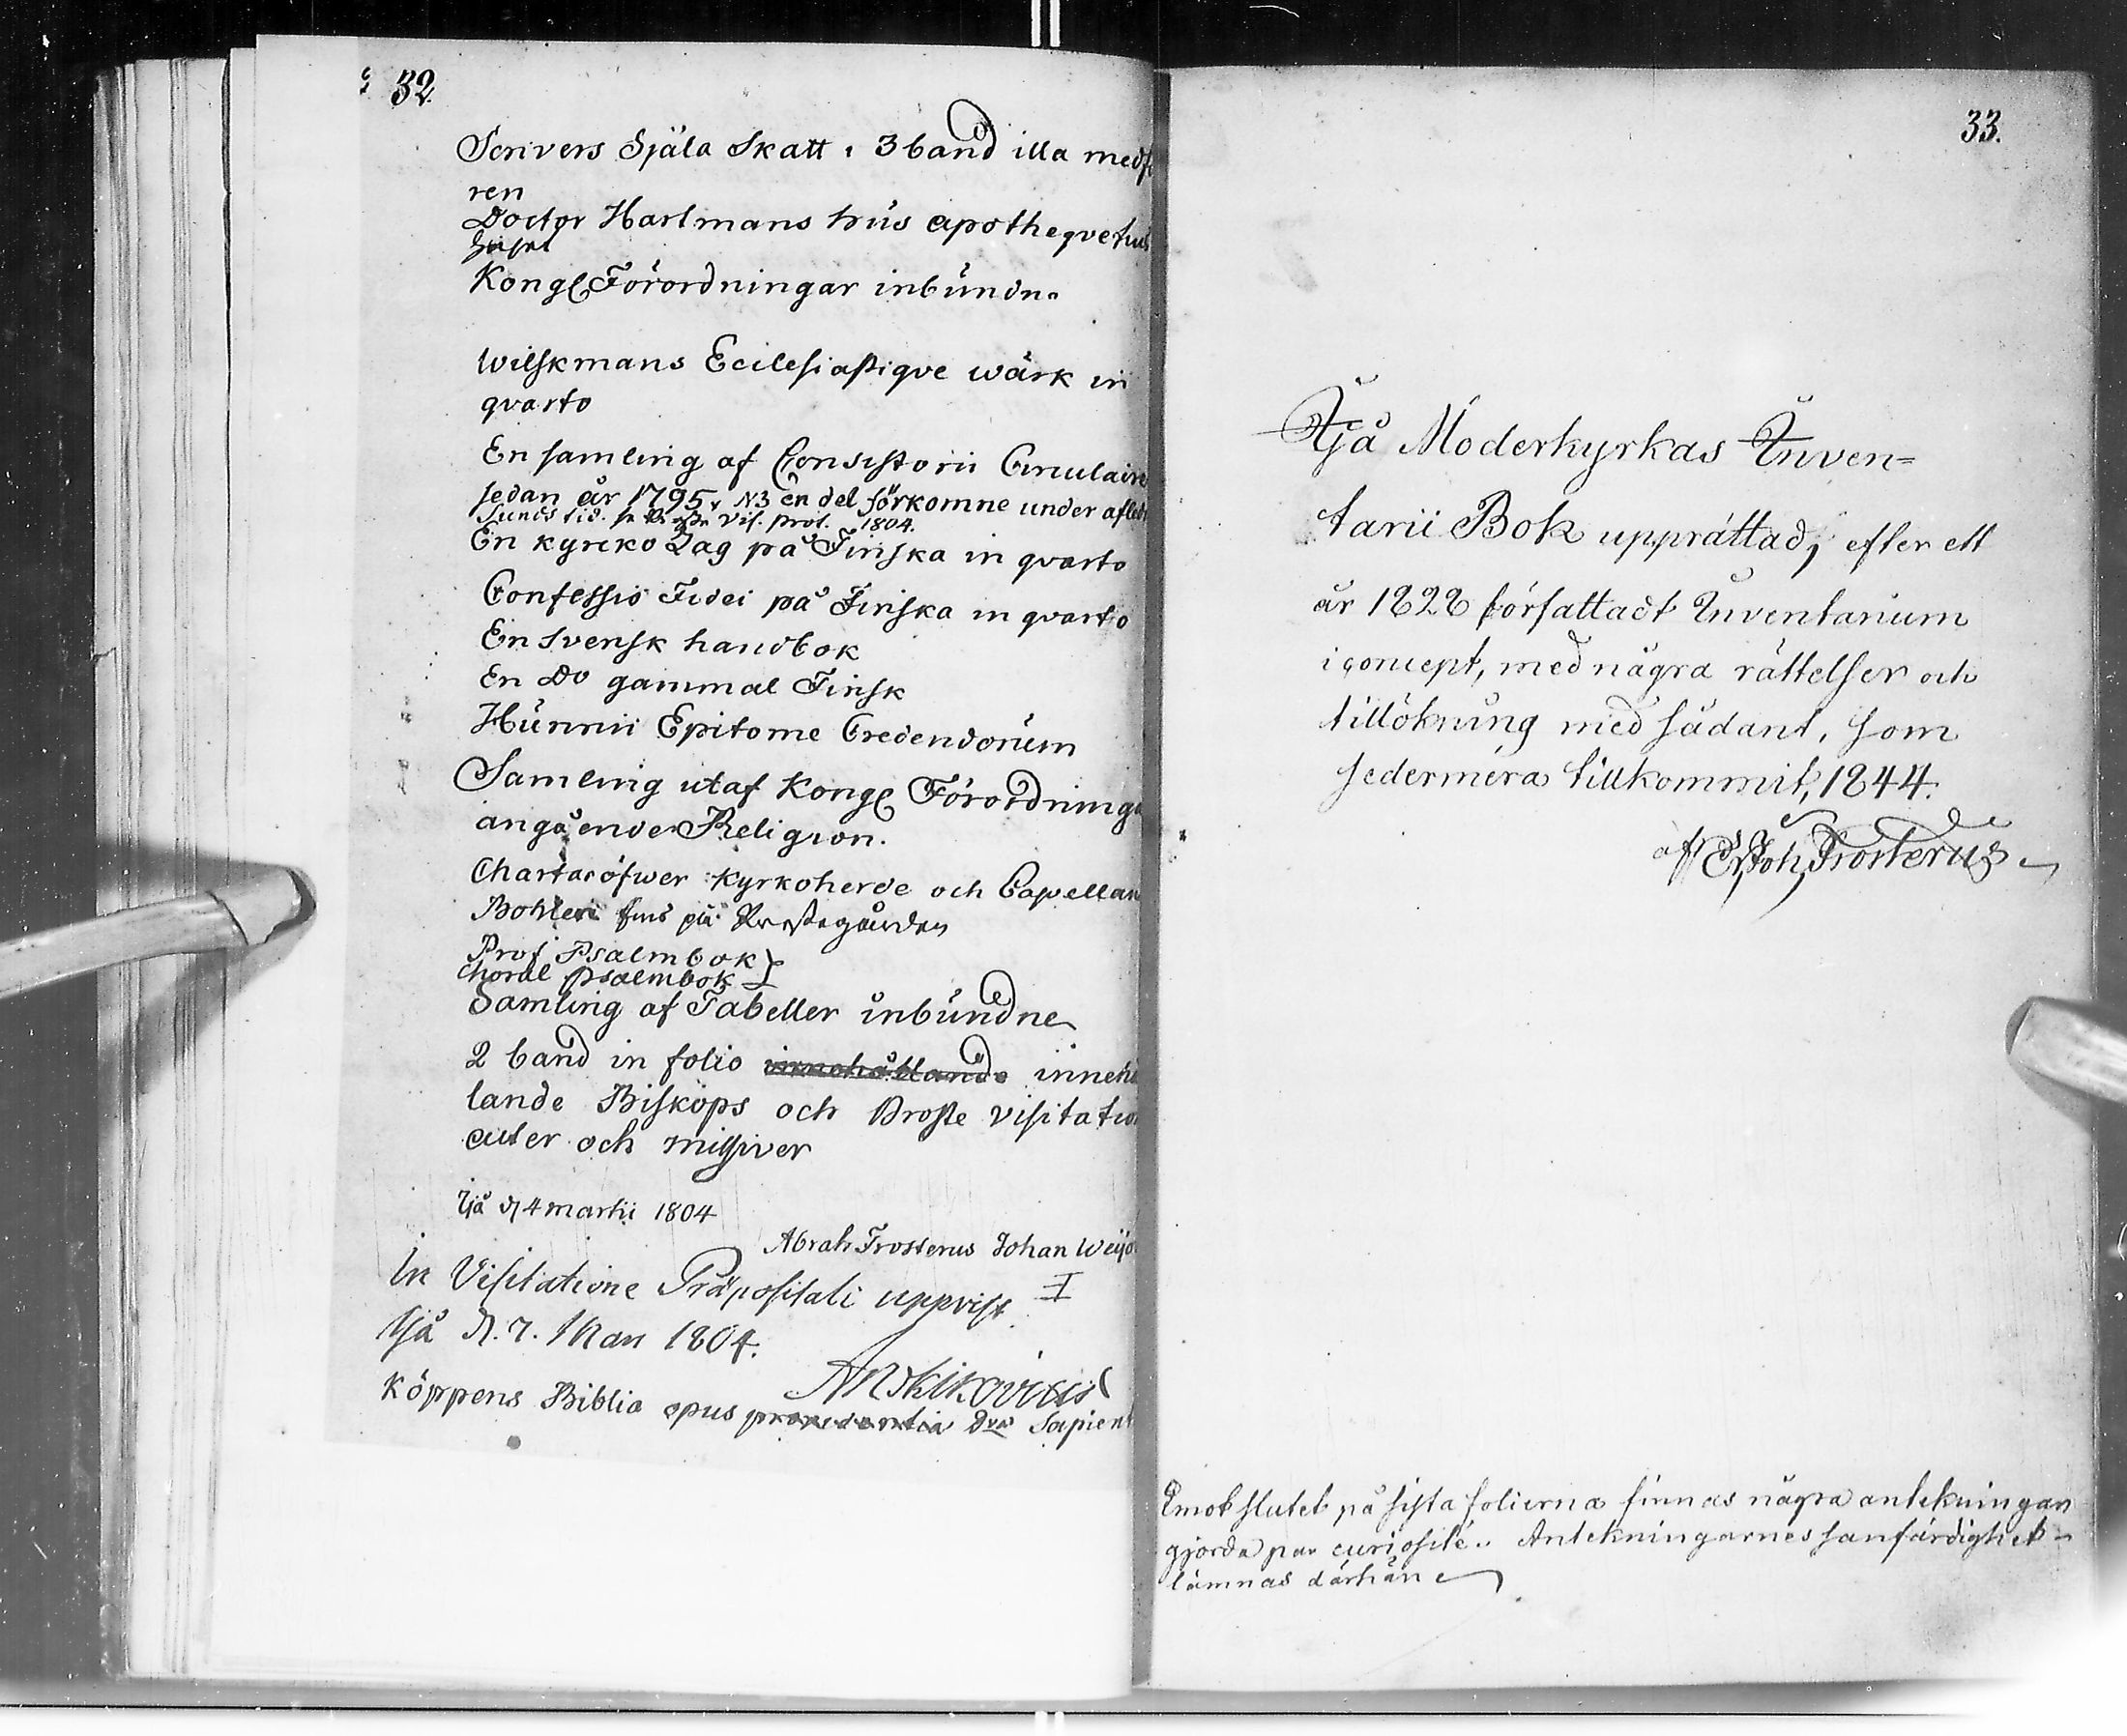 32
Scrivers Själa Skatt i 3 band illa medfa
ren
Doctor Hartmans hus apotheqve
Kongl Förordningar inbundn.
Wilskmans Ecilesiastiqve wärk in
qvarto
En samling af Consistorii Circulaire
sedan år 1795, N3 en del förkomne under afled
Sunds tid. se vis. prot. 1804.
En kyrcko Lag på Finska in qvarto
Confessio Fidei på Finska in qvarto
En svensk handbok
En Do gammal Finsk
Hunnii Epitome Credendorum
Samling utaf Kongl Förordninga
angående Religion.
Charta öfwer Kyrkoherde och Capellan
Bohlen fins på Prestegården
Prof Psalmbok }
Choral psalmbok }
Samling af Tabeller inbundne
2 band in folio innehållande innehå
lande Biskops och Proste visitation
acter och missiver
Ijå d 4 martii 1804
Abrah Frosterus Johan Weijo
In Visitatione Präpositali uppvist
Ijå d. 7. Mart 1804.
Köppens Biblia opus Sapient
33.
Ijå Moderkyrkas Inven=
tarii Bok upprättad, efter ett
år 1828 författadt Inventarium
i concept, med några rättelser och
tillökning med sådant, som
sedermera tillkommit, 1844.
af E Joh, Frosterus
Emot slutet på sista folierna finnas några antekningar
gjorda par curiosité. Antekningarnes sanfärdighet
lämnas därhän